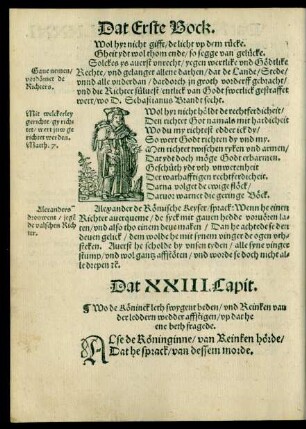 Dat Erste Bock.
Wol hyr nicht gifft / de licht vp dem rücke.
Gheit ydt wol thom ende / so segge van gelücke.
Solckes ys auerst vnrecht / yegen weertlike vnd Gödtlike
Rechte / vnd gelanget allene darhen / dat de Lande / Stede /
vnd alle vnderdan / dardorch yn groth vorderff gebracht /
vnd die Richter süluest entlick van Godt swerlick gestraffet
wert / wo D. Sebastianus Brandt secht.
Richters.
Mit welckerley
gerichte gy rich
ret / wert juw ge
richtet werden.
Matth. 7.
Wol hyr nicht höldt de rechtferdicheit /
Den richtet Gor namals mit hardicheit
Wo du my richtest edder ick dy /
So wert Godt richten dy vnd my.
Men richtet twischen ryken vnd armen /
Dat ydt doch möge Godt erbarmen.
Geschüth ydt vth vnweten heit
Der warhafftigen rechtferdicheit /
Darna volget de ewige flöck /
Daruor warnet die geringe Böck.
Alexander de Römische Keyser / sprack: Wenn he einen
Richter
de syck mit gauen hedde vorüören la-
ten / vnd also tho einem deue maken / Dan he achtede se den
deuen gelick / dem wolde he mit synem vinger de ogen vth-
stecken. Auerst he scholde by vnsen tyden / alle syne vinger
stump / vnd wol gantz affstöten / vnd worde se doch nicht al-
le drepen
Dat XXIII. Capit.
¶ Wo de Köninck leth swygent beden / vnd Reinken van
der leddern wedder affstigen / vp dat he
ene beth fragede.
ALse de Köninginne / van Reinken hörde /
Dat he sprack / van dessem morde.